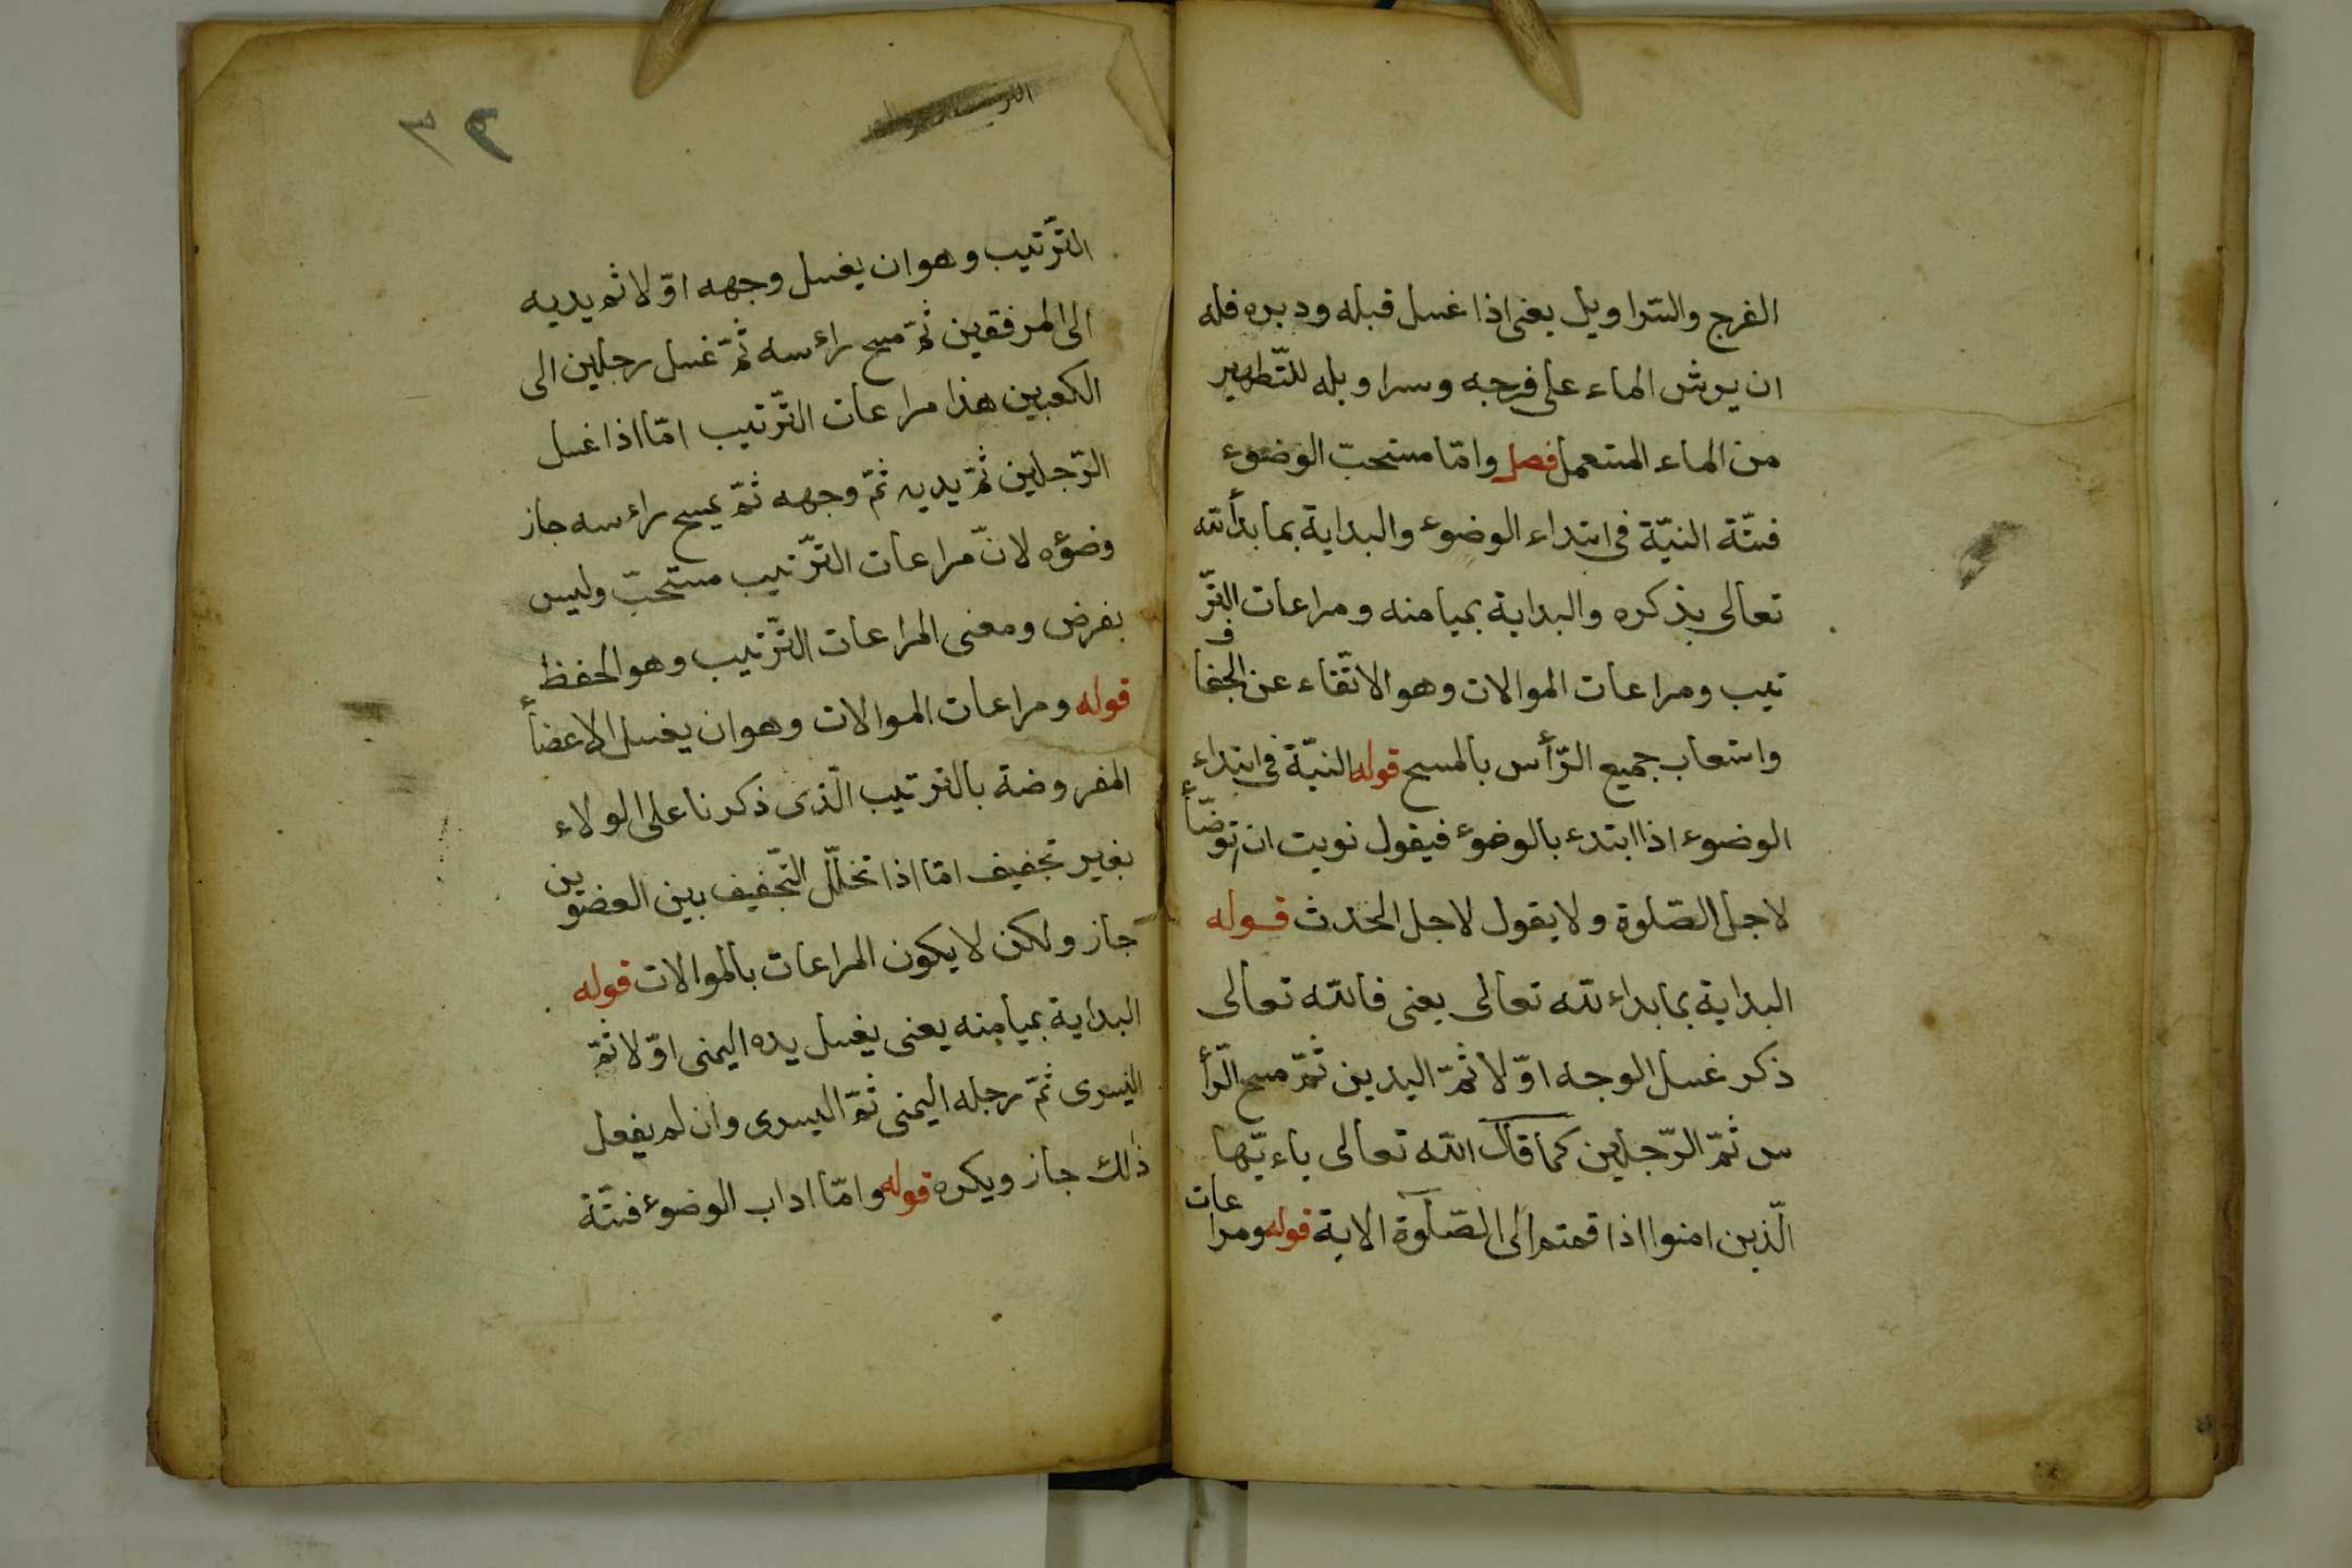 الفرج والسّراويل يعنى اذا غسل قبله ودبره فله
ان يرش الماء على فرجه وسراويله للتّطهير
من الماء المستعمل فصل وامّا مستحبّ الوضوء
فستّة النيّة فى ابتداء الوضوء والبداية بما بدأ الله
تعالى بذكره والبداية بميامنه ومراعات التّر
تيب ومراعات الموالات وهو الاتّقاء عن الجفاف
واستعاب جميع الرّأس بالمسح قوله النيّة فى ابتداء
الوضوء اذا ابتدء بالوضوء فيقول نويت ان توضّأ
لاجل الصّلوة ولا يقول لاجل الحدث قوله
البداية بما بداء الله تعالى يعنى فالله تعالى
ذكر غسل الوجه اوّلا ثمّ اليدين ثمّ مسح الرّأ
س ثمّ الرّجلين كما قال الله تعالى ياءيّها
الّذين امنوا اذا قمتم الى الصّلوة الاية قوله ومراعات
٣٢
التّرتيب وهو ان يغسل وجهه اوّلا ثم يديه
الى المرفقين ثمّ مسح راءسه ثمّ غسل رجلين الى
الكعبين هذا مراعات التّرتيب امّا اذا غسل
الرّجلين ثمّ يديه ثمّ وجهه ثمّ يمسح راءسه جاز
وضؤه لانّ مراعات التّرتيب مستحبّ وليس
بفرض ومعنى المراعات التّرتيب وهو الحفظ
قوله ومراعات الموالات وهو ان يغسل الاعضاء
المفروضة بالترتيب الّذى ذكرنا على الولاء
بغير تجفيف امّا اذا تخلّل التّجفيف بين العضوين
جاز ولكن لا يكون المراعات بالموالات قوله
البداية بميامنه يعنى يغسل يده اليمنى اوّلا ثمّ
اليسرى ثمّ رجله اليمنى ثمّ اليسرى وان لم يفعل
ذلك جاز ويكره قوله وامّا اداب الوضوء فستّة